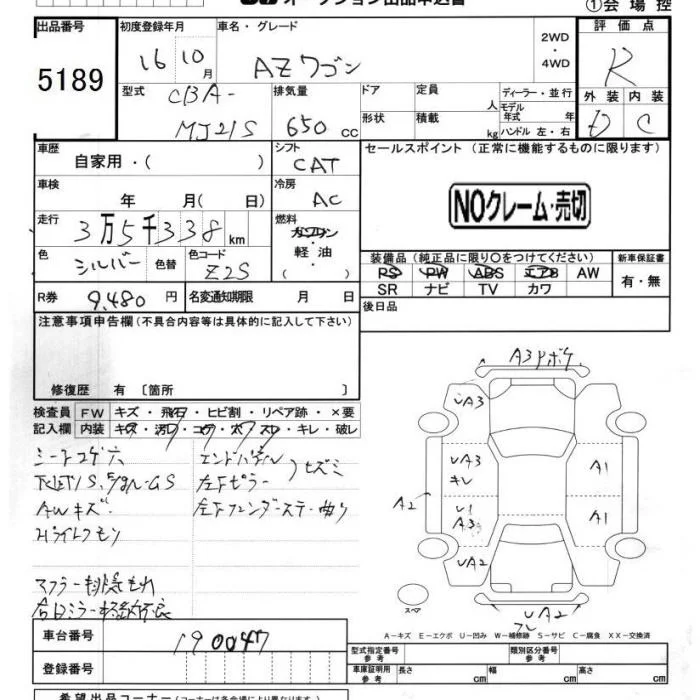 オークション出品申込書
①会場控
出品番号
5189
初度登録年月
16 10月
車名・グレード
AZワゴン
2WD
・
4WD
評価点
R
型式
CBA-
MJ21S
排気量
650 cc
ドア
定員
人
ディーラー・並行
モデル
年式 年
形状
積載
kg
ハンドル 左・右
外装 内装
D C
車歴
自家用・( )
シフト
CAT
セールスポイント (正常に機能するものに限ります)
NOクレーム・売切
車検
年 月( 日)
冷房
AC
走行
3万5千338km
燃料
ガソリン
・
軽油
( )
色
シルバー
色替
色コード
Z2S
装備品 (純正品に限り○をつけてください)
新車保証書
PS PW ABS エアB AW
SR ナビ TV カワ
有・無
R券
9,480円
名変通知期限 月 日
後日品
注意事項申告欄(不具合内容等は具体的に記入して下さい)
修復歴 有 〔箇所 〕
検査員
記入欄
FW キズ・飛石・ヒビ割・リペア跡・×要
内装 キズ・汚レ・コゲ・穴・スレ・キレ・破レ
シートコゲ穴
AWキズ
エンドパネル
左下ピラー
マフラー排気もれ
A3
UA3
UA3
キレ
A3
UA2
A2
A1
A1
UA2
スペア
A-キズ E-エクボ U-凹み W-補修跡 S-サビ C-腐食 XX-交換済
車台番号
190047
登録番号
型式指定番号
参考
類別区分番号
参考
車庫証明用
参考
長さ cm
幅 cm
高さ cm
希望出品コーナー